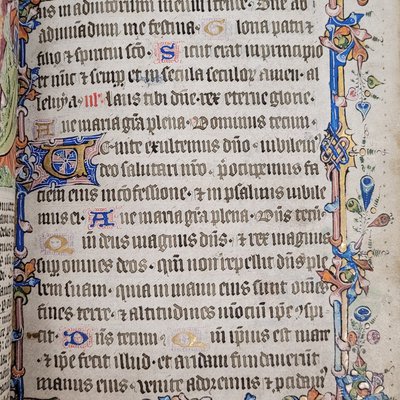 us in adiutorium meum intende. Dne ad
adiuuādum me festina. Gloria patri ⁊
filio ⁊ spiritui sc̄o. Sicut erat in principio
et nūc ⁊ semꝑ et in secula seculoꝝ amen. al
leluya. ul' laus tibi dn̄e. rex eterne glorie.
Aue maria gr̄a plena. Dominus tecum.
Uenite exultemus dn̄o iubilem'
deo salutari nr̄o. p̄occupemus fa
ciem eius in cōfessione. ⁊ in psalmis iubile
mus ei. Aue maria gr̄a plena. Dn̄s tecū.
Qm̄ deus magnus dn̄s. ⁊ rex magnus
suꝑ omnes deos. qm̄ non repellit dn̄s ple
bem suam. quia in manu eius sunt om̄es
fines terre. ⁊ altitudines mōtiū ip̄e 9spi
cit. Dn̄s tecum. Qm̄ ipius est mare
⁊ ip̄e fecit illud. et aridam fundauerūt
manus eius. uenite adoremus ⁊ p̄cidam'